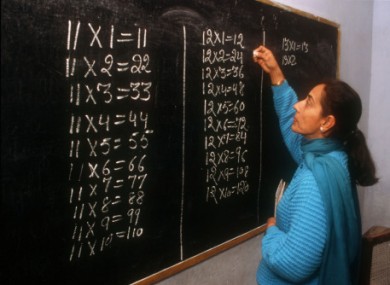 11 X 1 = 11
11 X 2 = 22
11 X 3 = 33
11 X 4 = 44
11 X 5 = 55
11 X 6 = 66
11 X 7 = 77
11 X 8 = 88
11 X 9 = 99
11 X 10 = 110
12 X 1 = 12
12 X 2 = 24
12 X 3 = 36
12 X 4 = 48
12 X 5 = 60
12 X 6 = 72
12 X 7 = 84
12 X 8 = 96
12 X 9 = 108
12 X 10 = 120
13 X 1 = 13
13 X 2